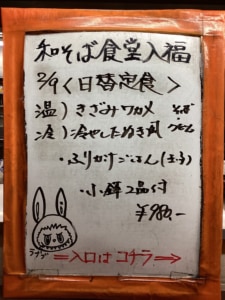 和そば食堂入福
2/9〈日替定食〉
温）きざみワカメ そば
冷）冷やしたぬき風 うどん
・ふりかけごはん(玉子)
・小鉢2品付
¥980.-
=入口はコチラ⇒